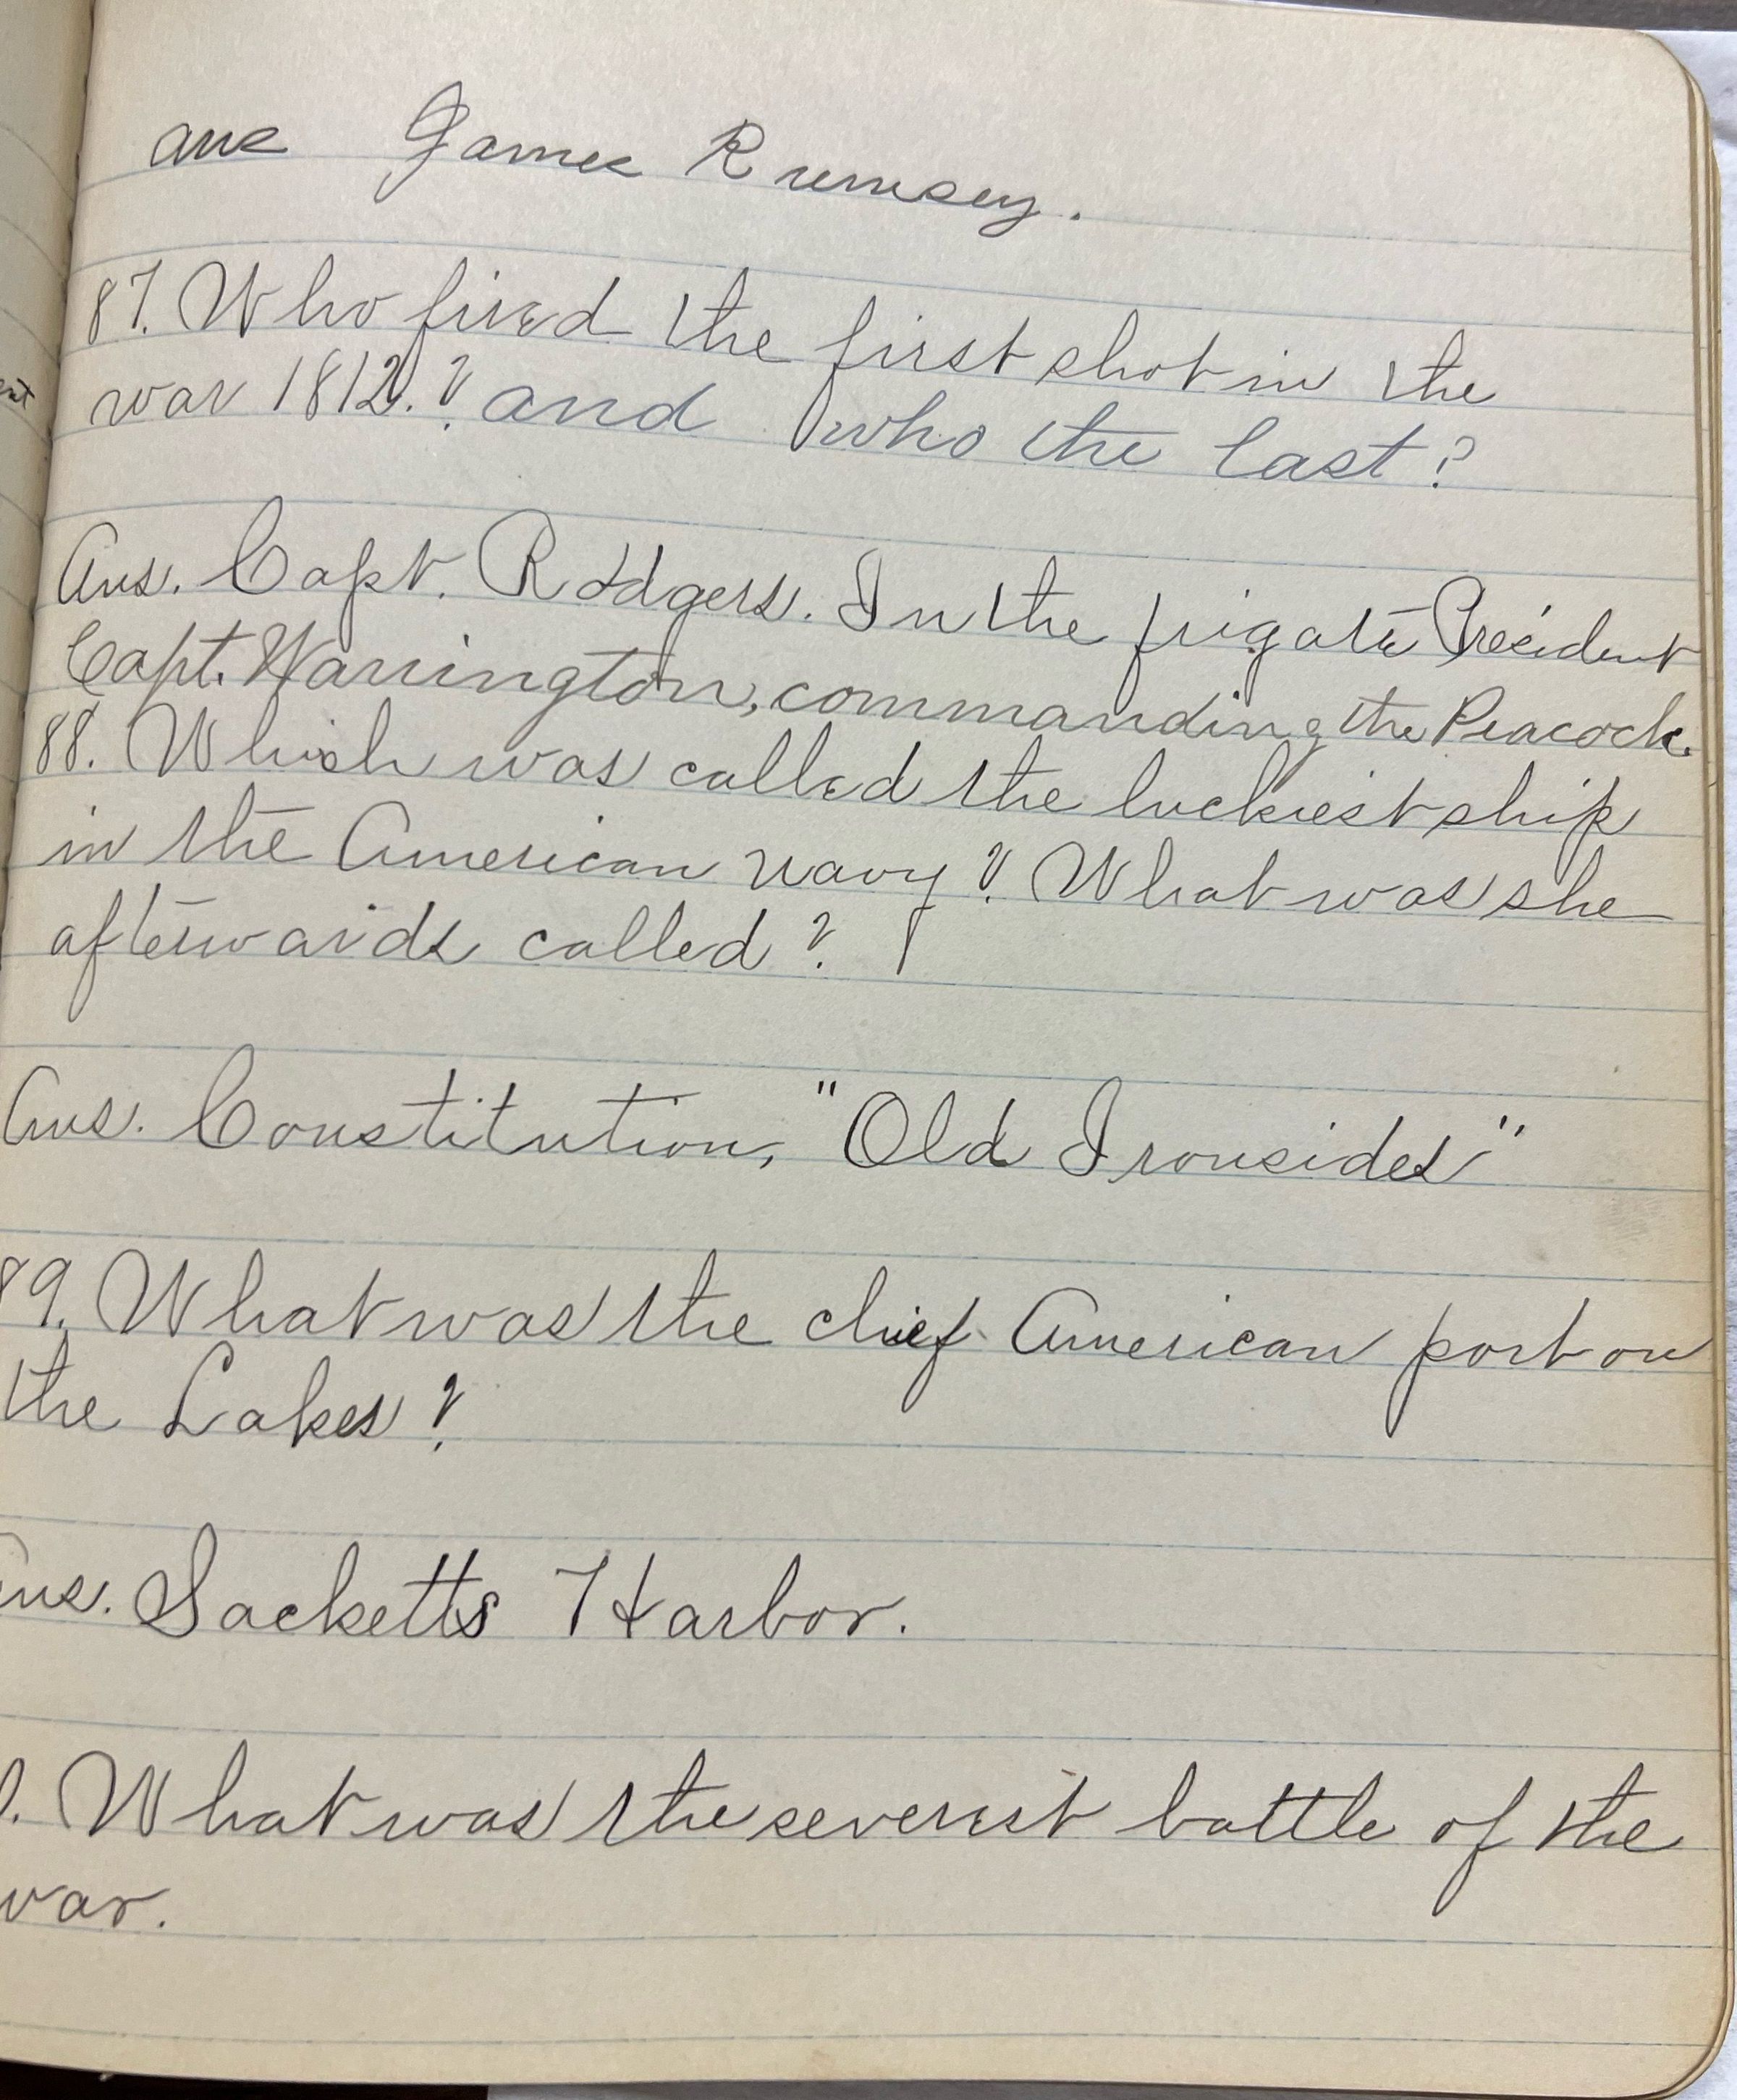 ans James Rumsey.
87. Who fired the first shot in the
war 1812.? and who the last?
Ans. Capt. Rodgers. In the frigate President
Capt. Warrington, commanding the Peacock.
88. Which was called the luckiest ship
in the American navy? What was she
afterwards called?
Ans. Constitution, "Old Ironsides"
89. What was the chief American port on
the Lakes?
Ans. Sacketts Harbor.
0. What was the severest battle of the
war.